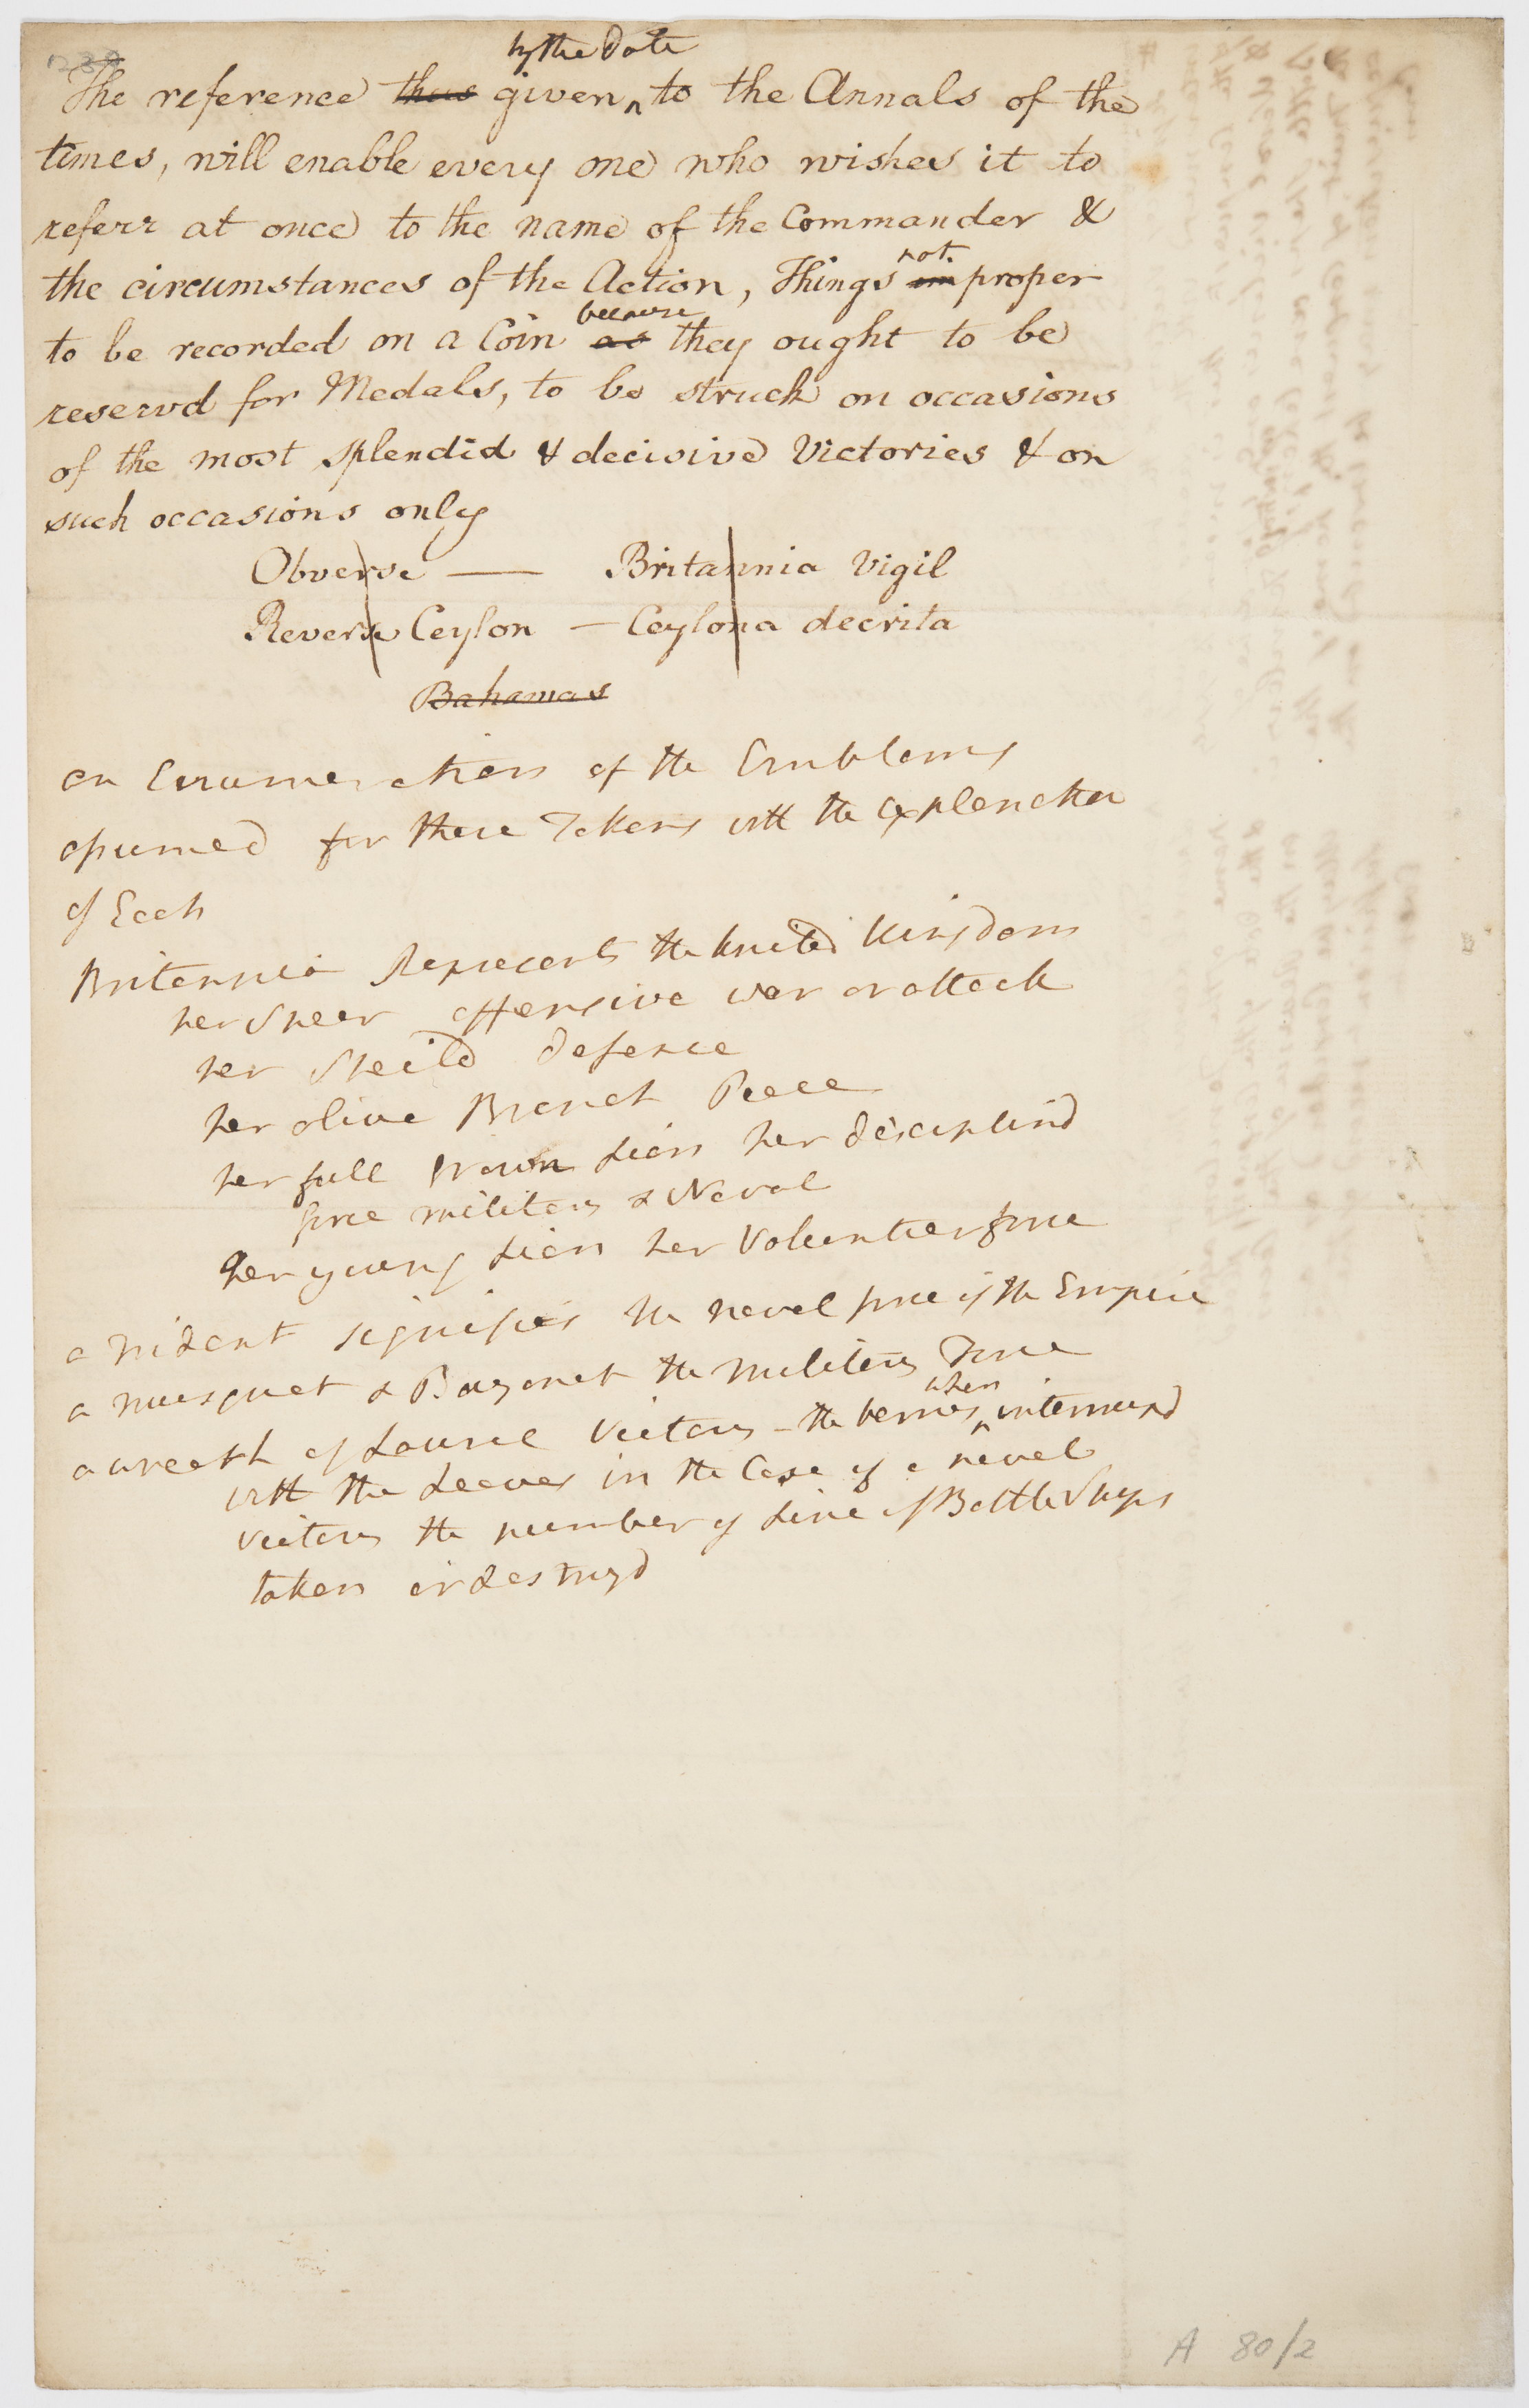 by the date
The reference thus given ^ to the Annals of the
times, will enable every one who wishes it to
referr at once to the name of the Commander &
not
the circumstances of the Action, Things im proper
because
to be recorded on a Coin as they ought to be
reservd for Medals, to be struck on occasions
of the most splendid & decisive Victories & on
such occasions only
Obverse — Britannia Vigil
Reverse Ceylon — Ceylona decrita
Bahamas
an Enumeration of the Emblems
assumed for these Tokens with the Explanation
of Each
Britannia Represents the United Kingdom
her Spear offensive war or attack
her Sheild defence
her olive Branch Peace
her full grown Lion her disciplind
force military & Naval
her young Lion her Volunteer force
a Trident signifies the naval force of the Empire
a musquet & Bayonet the military Force
when
a wreath of Laurel Victory – the berries ^ intermixd
with the Leaves in the Case of a naval
victory the number of Line of Battle Ships
taken or destroyd
A 80/2